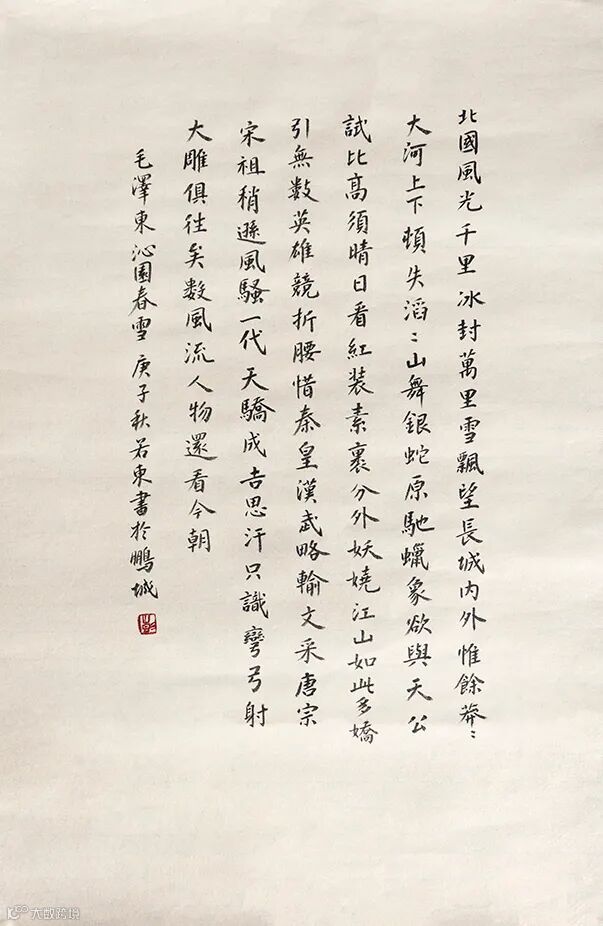 北國風光千里冰封萬里雪飄望長城内外惟餘莽〻
大河上下頓失滔〻山舞銀蛇原馳蠟象欲與天公
試比高須晴日看紅装素裹分外妖嬈江山如此多嬌
引無数英雄競折腰惜秦皇漢武略輸文采唐宗
宋祖稍遜風騷一代天驕成吉思汗只識彎弓射
大雕俱往矣数風流人物還看今朝
毛澤東沁園春雪庚子秋若東書於鵬城
大数跨境